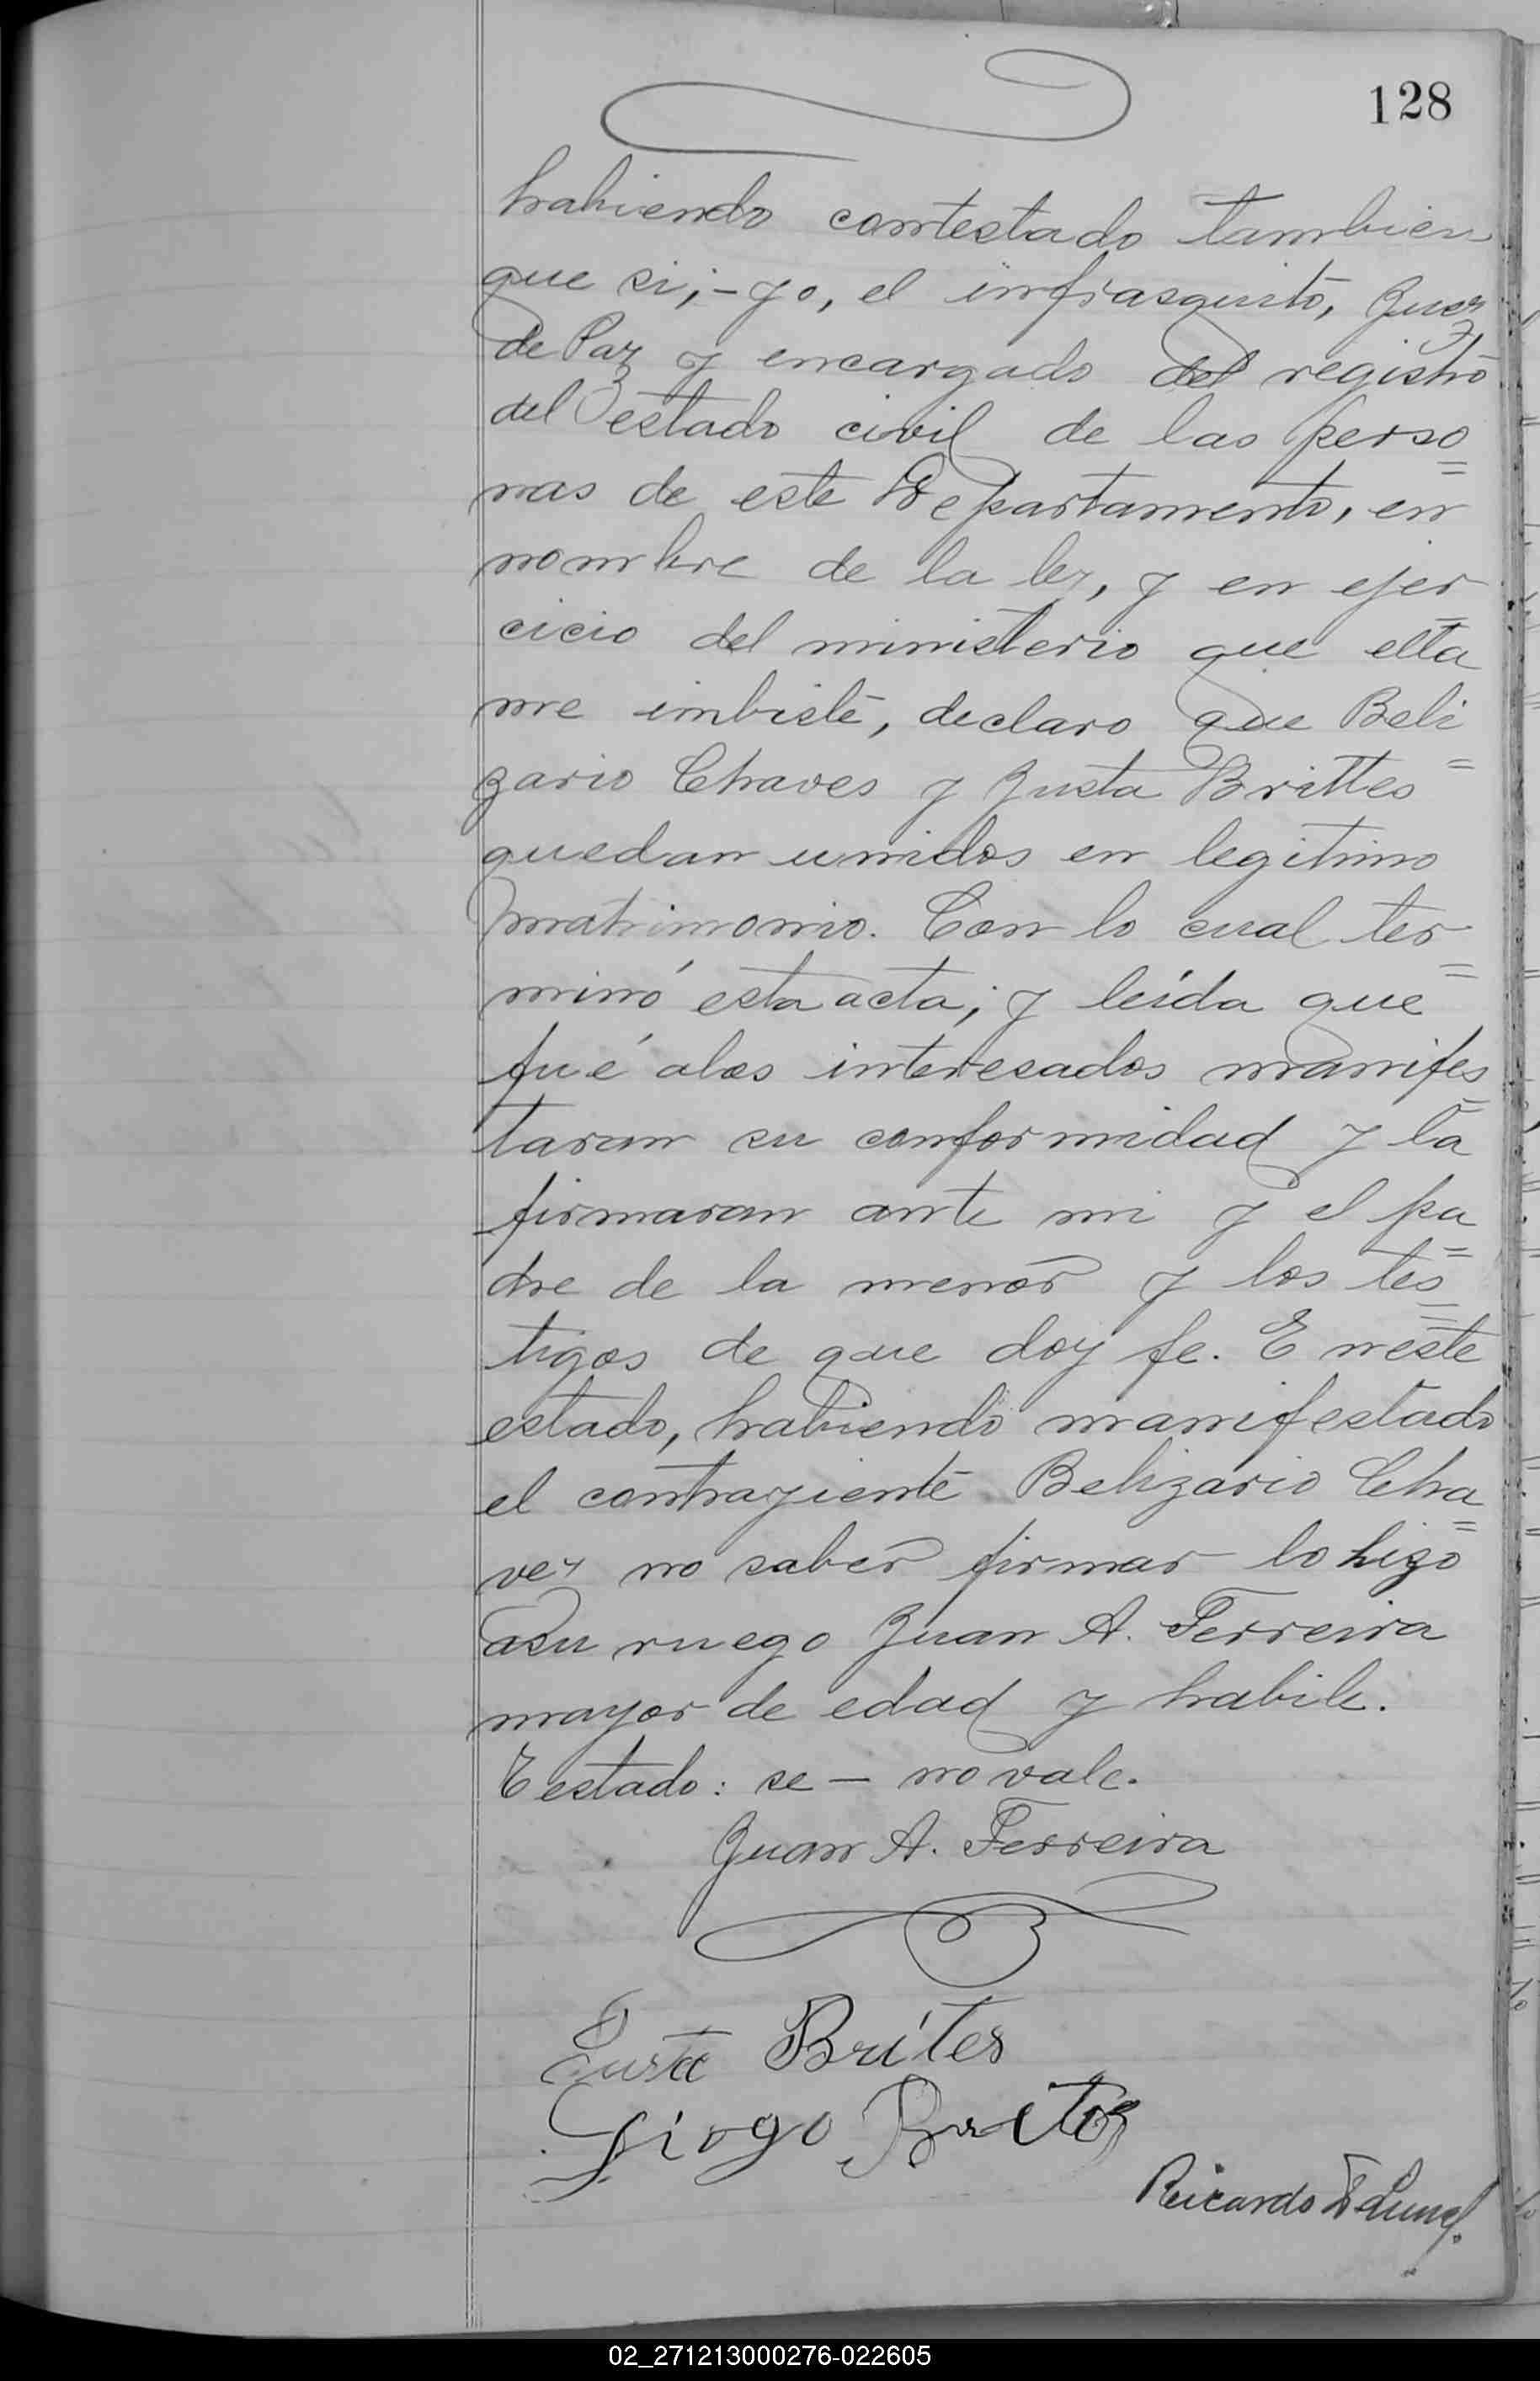 128
habiendo contestado tambien
que si; - yo, el infrasquito, Juez
de Paz y encargado del registro
del estado civil de las perso=
nas de este Departamento, en
nombre de la ley, y en ejer=
cicio del ministerio que ella
me imbiste, declaro que Beli=
zario Chaves y Justa Brittes
quedan unidos en legitimo
matrimonio. Con lo cual ter=
minó esta acta; y leída que
fué alos interesados manifes=
taron su conformidad y la
firmaron ante mi y el pa=
dre de la menor y los tes=
tigos de que doy fe. E neste
estado, habiendo manifestado
el contrayente Belizario Cha=
ves no saber firmar lo hizo
asu ruego Juan A. Ferreira
mayor de edad y habile.
Testado: se - no vale.
Juan A. Ferreira
Justa Brítes
Diogo Brites
Ricardo
02_271213000276-022605